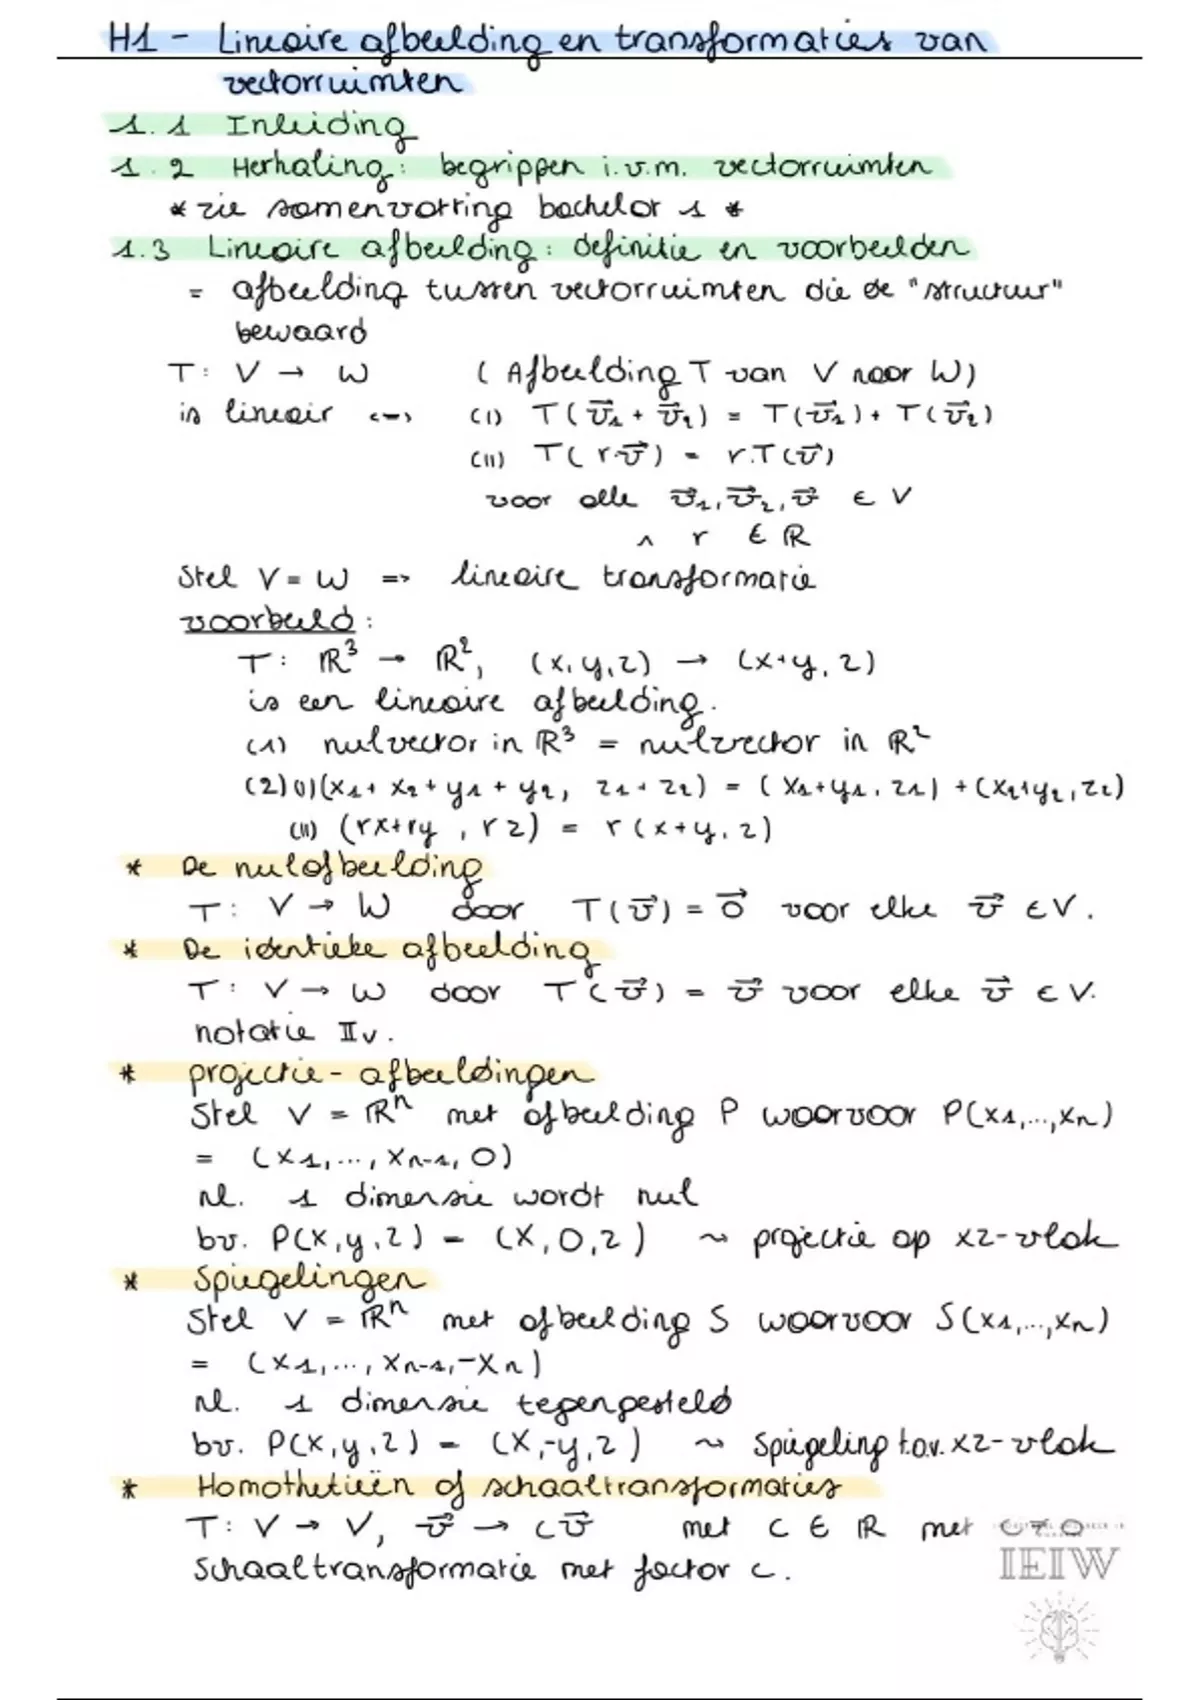 H1 - Lineaire afbeelding en transformaties van
vectorruimten
1.1 Inleiding
1.2 Herhaling: begrippen i.v.m. vectorruimten
* zie samenvatting bachelor 1 *
1.3 Lineaire afbeelding: definitie en voorbeelden
= afbeelding tussen vectorruimten die de "structuur"
bewaard
T: V → W ( Afbeelding T van V naar W)
is lineair <=> (i) T(v⃗₁ + v⃗₂) = T(v⃗₁) + T(v⃗₂)
(ii) T(r.v⃗) = r.T(v⃗)
voor alle v⃗₁, v⃗₂, v⃗ ∈ V
∧ r ∈ ℝ
Stel V = W => lineaire transformatie
voorbeeld:
T: ℝ³ → ℝ², (x,y,z) → (x+y, z)
is een lineaire afbeelding.
(1) nulvector in ℝ³ = nulvector in ℝ²
(2)(i)(x₁ + x₂ + y₁ + y₂, z₁ + z₂) = (x₁+y₁, z₁) + (x₂+y₂, z₂)
(ii) (rx+ry, rz) = r(x+y, z)
* De nulafbeelding
T: V → W door T(v⃗) = 0⃗ voor elke v⃗ ∈ V.
* De identieke afbeelding
T: V → W door T(v⃗) = v⃗ voor elke v⃗ ∈ V.
notatie 𝕀ᵥ.
* projectie-afbeeldingen
Stel V = ℝⁿ met afbeelding P waarvoor P(x₁,...,xₙ)
= (x₁,..., xₙ₋₁, 0)
nl. 1 dimensie wordt nul
bv. P(x,y,z) = (x,0,z) ⇝ projectie op xz-vlak
* Spiegelingen
Stel V = ℝⁿ met afbeelding S waarvoor S(x₁,...,xₙ)
= (x₁,..., xₙ₋₁,-xₙ)
nl. 1 dimensie tegengesteld
bv. P(x,y,z) = (x,-y,z) ⇝ Spiegeling t.o.v. xz-vlak
* Homothetieën of schaaltransformaties
T: V → V, v⃗ → cv⃗ met c ∈ ℝ met
Schaaltransformatie met factor c.
IEIW